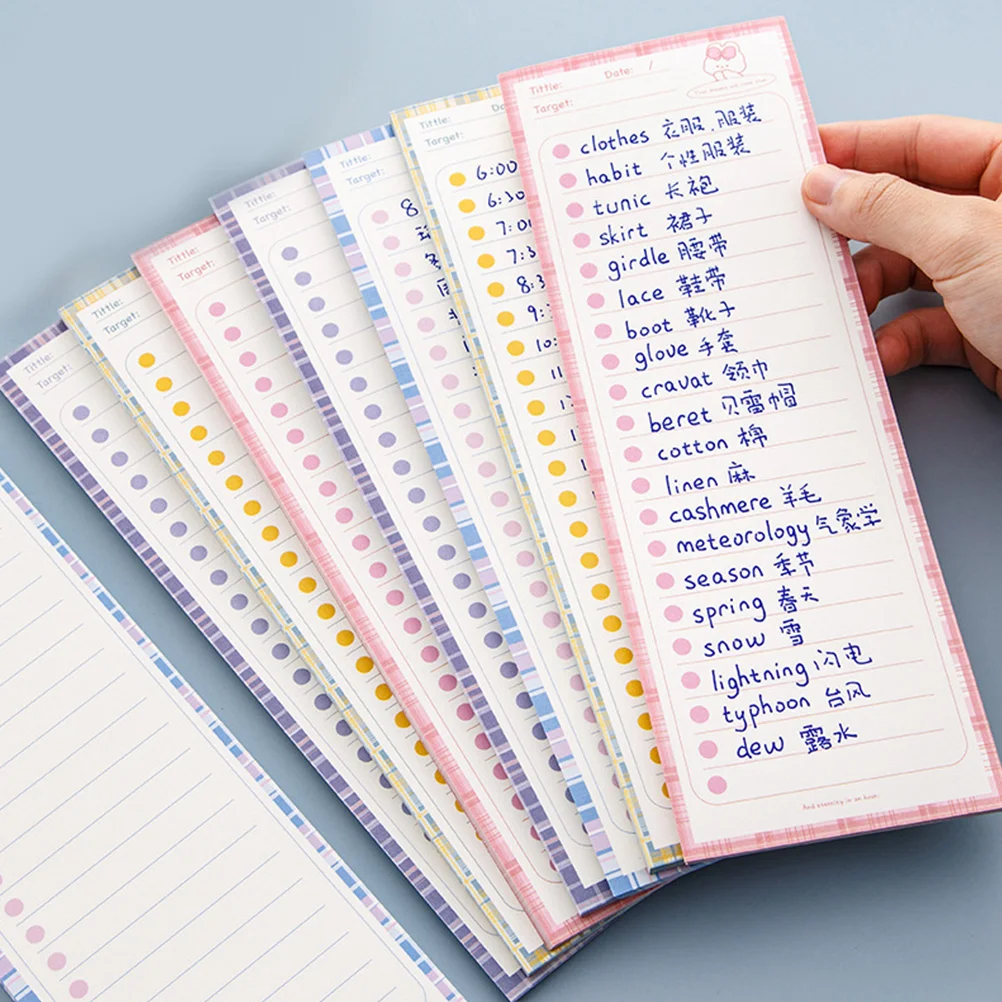 Tittle:
Date: /
Target:
clothes 衣服、服装
habit 个性服装
tunic 长袍
skirt 裙子
girdle 腰带
lace 鞋带
boot 靴子
glove 手套
cravat 领巾
beret 贝雷帽
cotton 棉
linen 麻
cashmere 羊毛
meteorology 气象学
season 季节
spring 春天
snow 雪
lightning 闪电
typhoon 台风
dew 露水
Tittle:
Target:
6:00
6:30
Tittle:
Target:
8
Tittle:
Target:
Tittle:
Target:
Tittle:
Target:
Tittle:
Target: